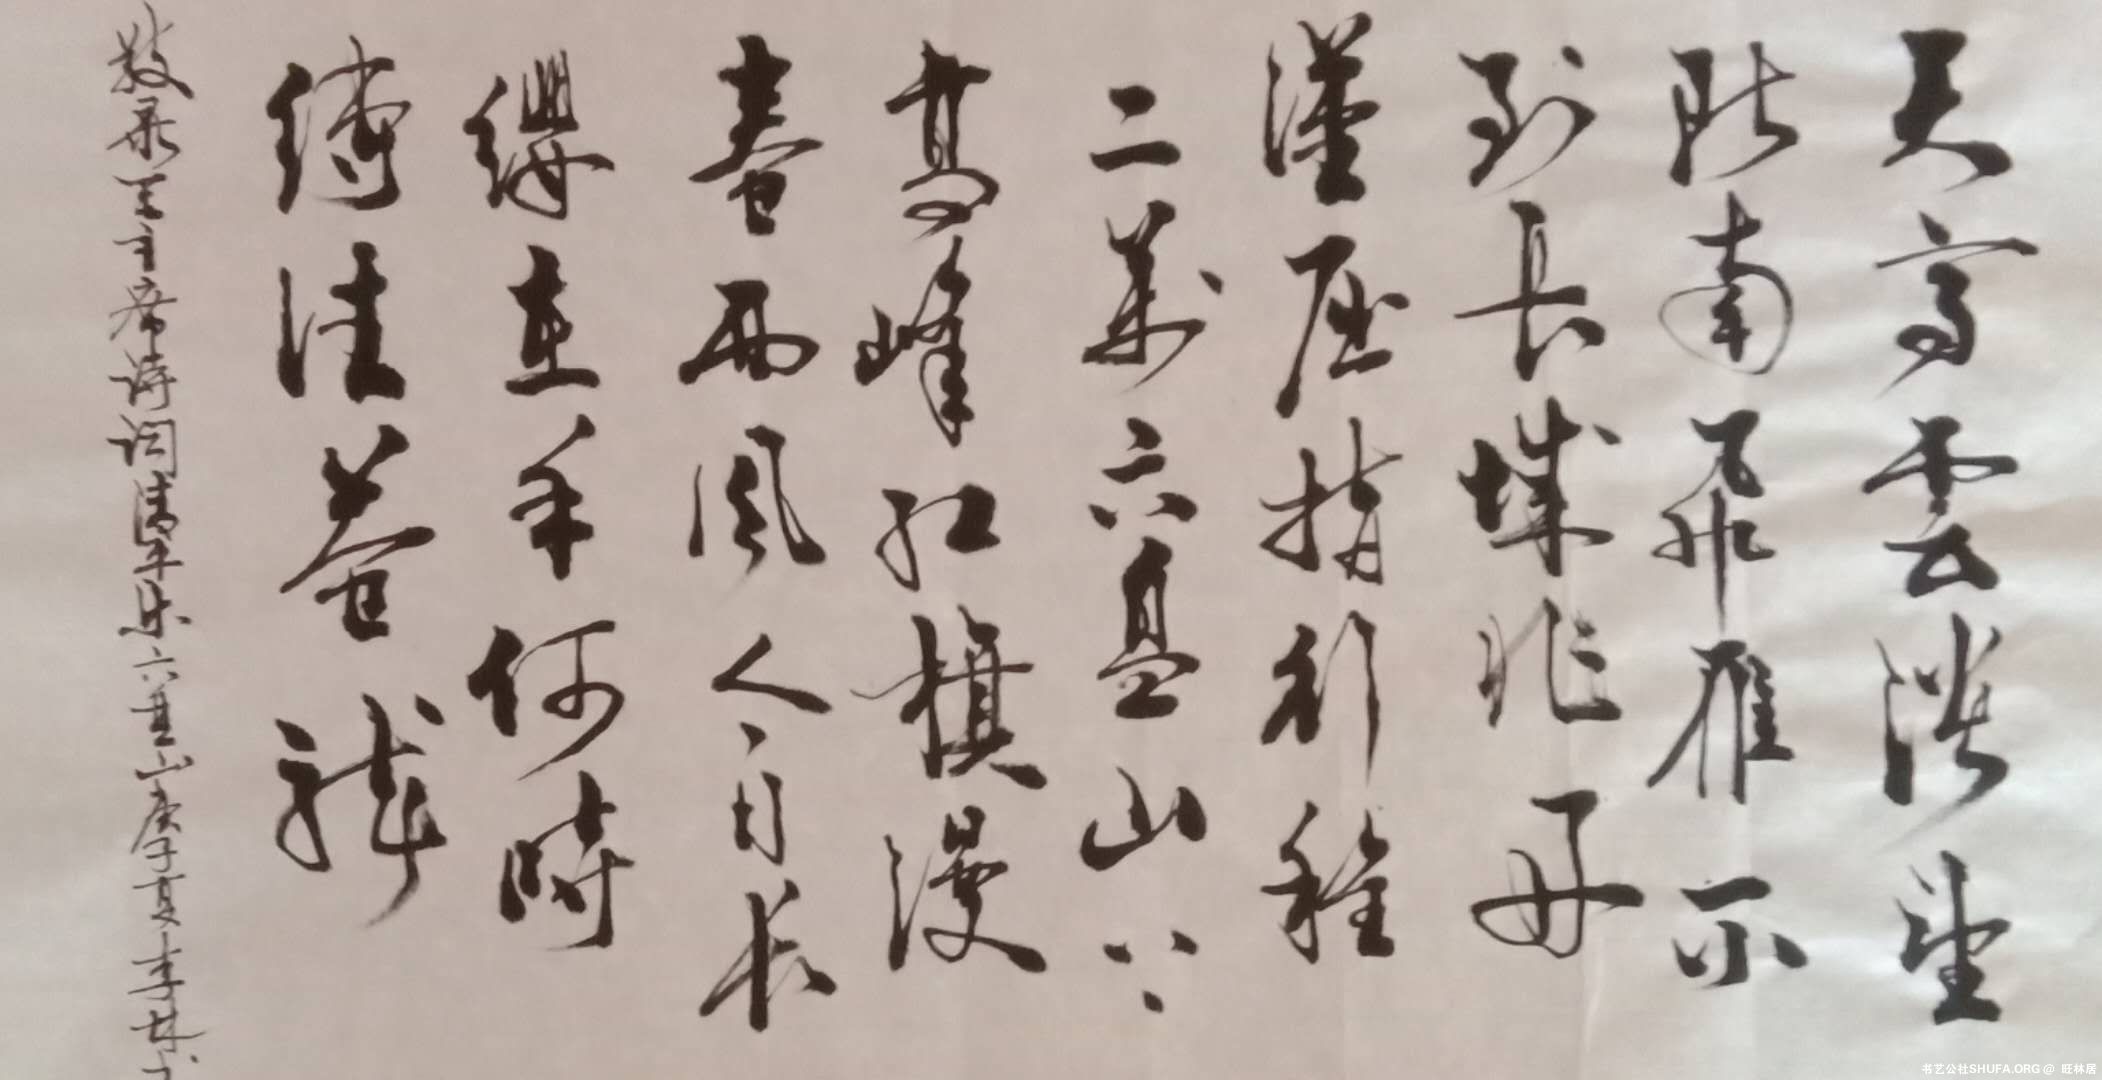 天高雲淡望
断南飛雁不
到長城非好
漢屈指行程
二萬六盘山上
高峰红旗漫
卷西風今日長
纓在手何時
縛住蒼龍
敬录毛主席诗词清平乐六盘山庚子夏李林书
书艺公社SHUFA.ORG @ 旺林居